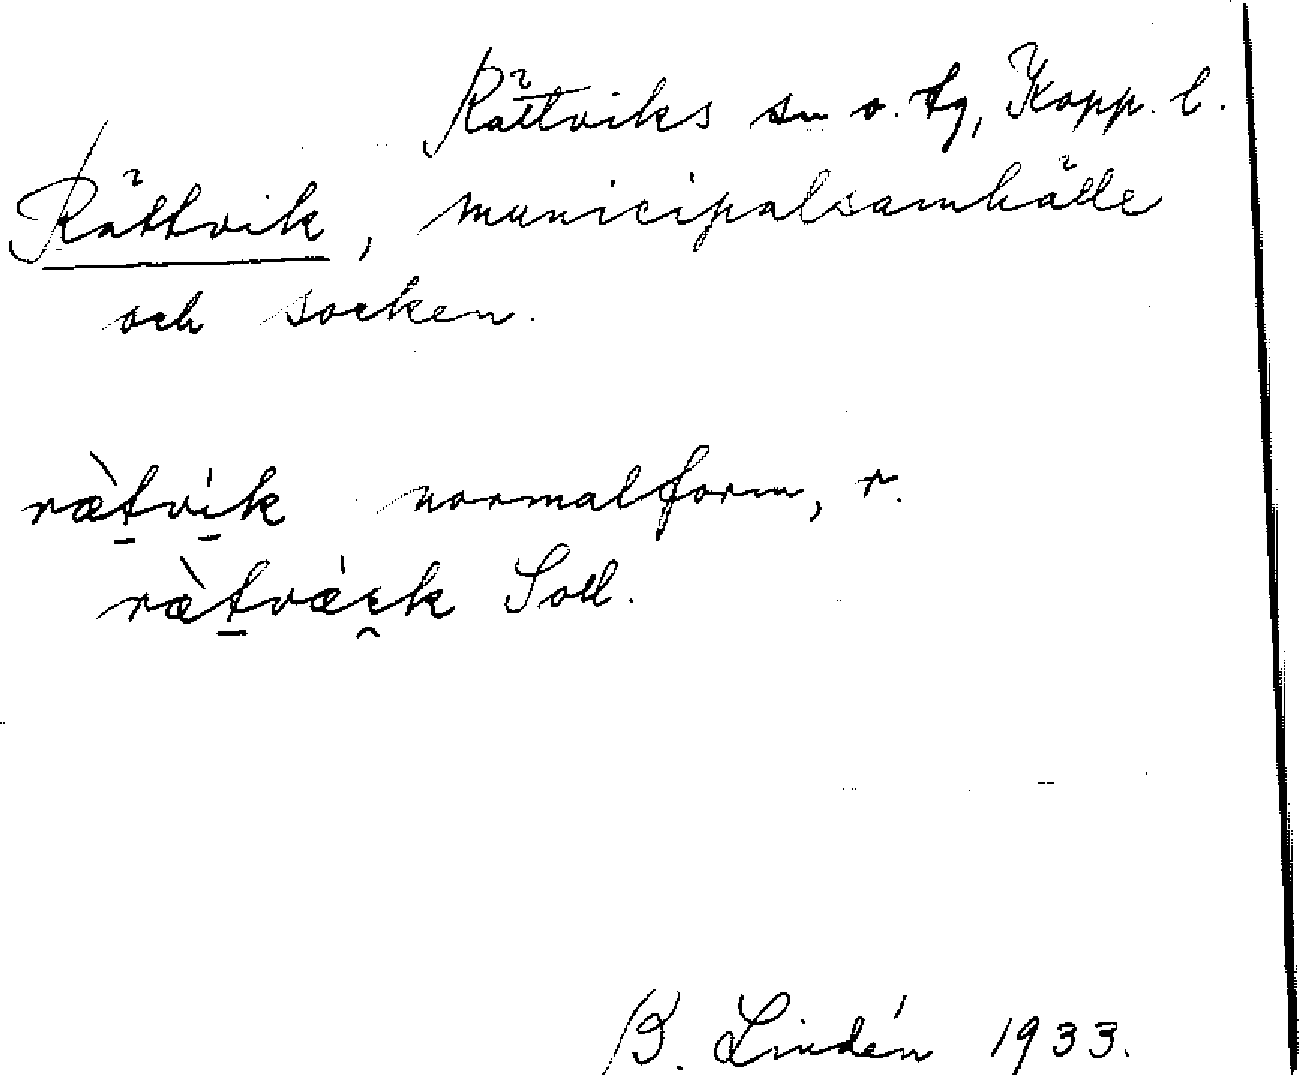 Rättviks sn o. tg, Kopp. l.
Rättvik, municipalsamhälle
och socken.
ræ̀t̠vi̠k normalform, r.
ræ̀t̠væ̀ck Soll.
B. Lindén 1933.